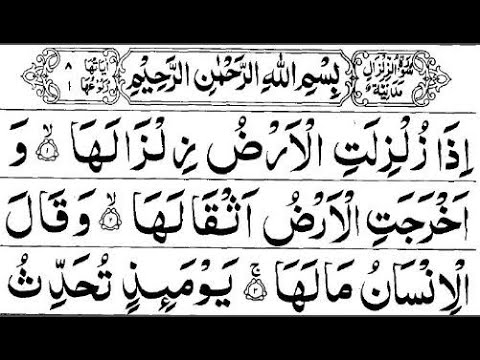 سُوْرَةُ الزِّلْزَالِ مَدَنِيَّةٌ بِسْمِ اللهِ الرَّحْمٰنِ الرَّحِيْمِ اٰيَاتُهَا ٨ رُكُوْعُهَا ١
اِذَا زُلْزِلَتِ الْاَرْضُ زِلْزَالَهَا ۙ﴿١﴾ وَ
اَخْرَجَتِ الْاَرْضُ اَثْقَالَهَا ۙ﴿٢﴾ وَقَالَ
الْاِنْسَانُ مَالَهَا ۚ﴿٣﴾ يَوْمَئِذٍ تُحَدِّثُ